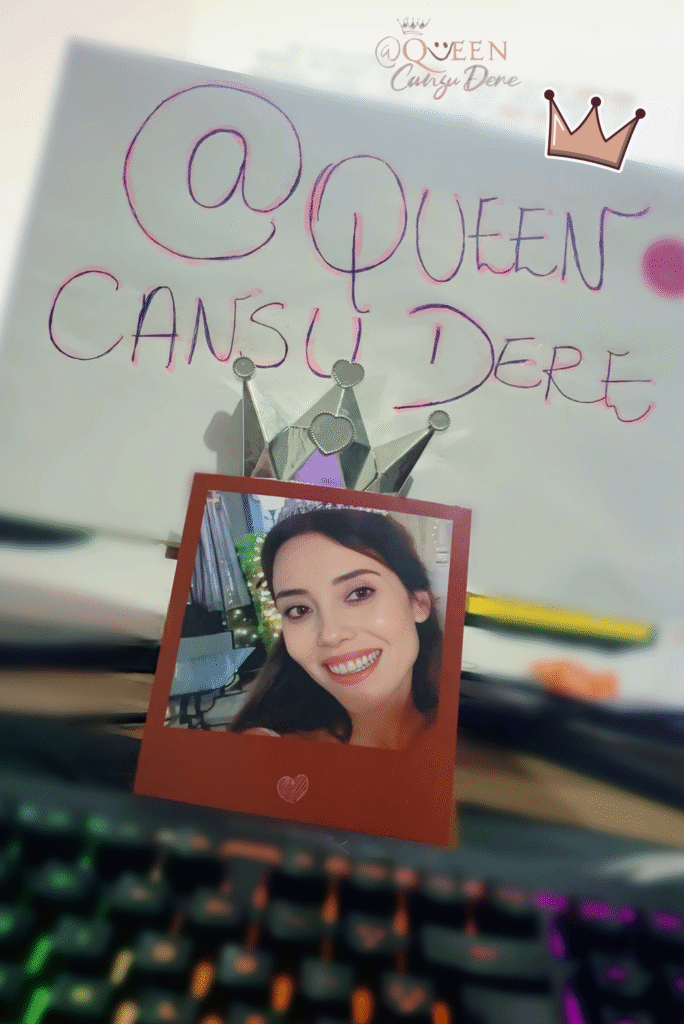 @QUEEN
Cansu Dere
@QUEEN
CANSU DERE